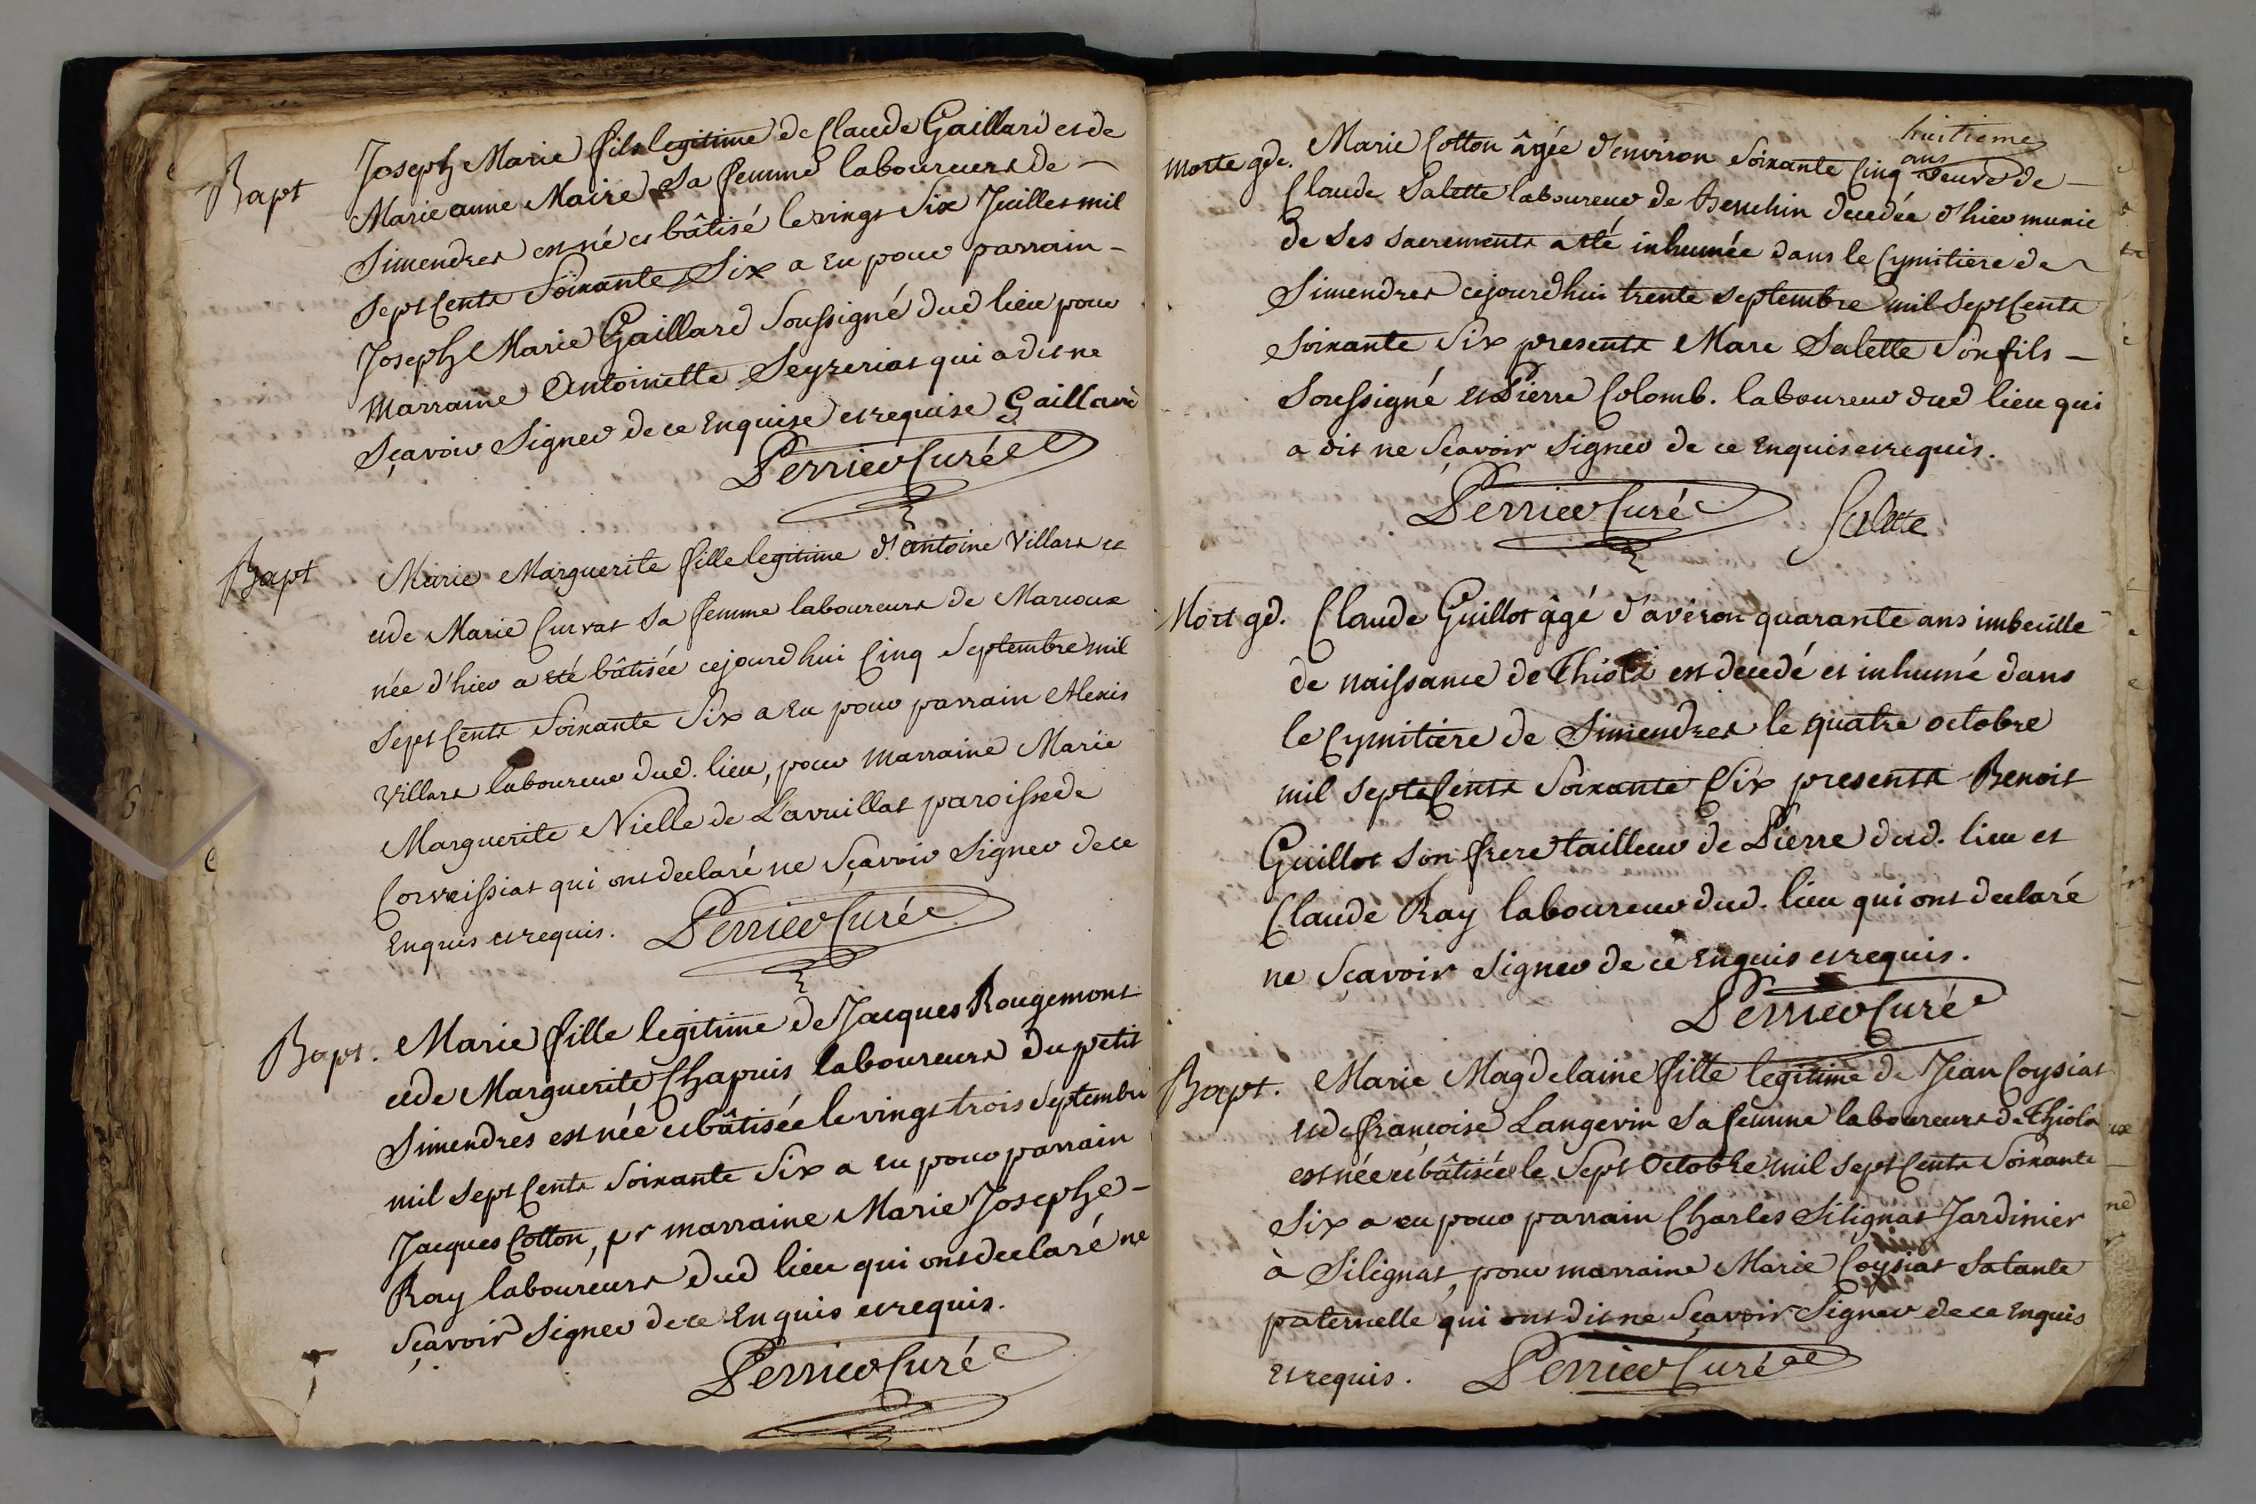 Bapt
Joseph Marie fils legitime de Claude Gaillard et de
Marie anne Maire sa femme laboureurs de –
Simendres est né et bâtisé le vingt six Juillet mil
sept Cents Soixante Six a eu pour parrain –
Joseph Marie Gaillard Soussigné dud lieu pour
marraine Antoinette Seyzeriat qui a dit ne
sçavoir signer de ce enquise et requise Gaillard
Perrier Curé
Bapt
Marie Marguerite fille legitime d'antoine Villars et
et de Marie Curvat sa femme laboureurs de Marcoux
née d'hier a eté bâtisée cejourdhui Cinq Septembre mil
sept Cents Soixante Six a eu pour parrain Alexis
Villars laboureur dud. lieu, pour marraine Marie
Marguerite Nielle de Lavuillat paroisse de
Corveissiat qui ont declaré ne sçavoir signer de ce
enquis et requis. Perrier Curé
Bapt.
Marie fille legitime de Jacques Rougemont
et de Marguerite Chapuis laboureurs du petit
Simendres est née et bâtisée le vingt trois septembre
mil sept Cents soixante Six a eu pour parrain
Jacques Cotton, pr marraine Marie Josephe –
Ray laboureurs dud lieu qui ont declaré ne
sçavoir signer de ce enquis et requis.
Perrier Curé
huitieme
ans
Morte gde. Marie Cotton âgée d'environ soixante Cinq veuve de –
Claude Salette laboureur de decedée d'hier munie
de ses sacrements a eté inhumée dans le Cymitiere de
Simendres cejourdhui trente septembre mil sept Cents
soixante six presents Marc Salette son fils –
Soussigné et Pierre Colomb. laboureur dud lieu qui
a dit ne sçavoir signer de ce enquis et requis.
Perrier Curé Salette
Mort gd. Claude Guillot âgé d'avéron quarante ans imbeulle
de naissance de Thiola est decedé et inhumé dans
le Cymitiere de Simendres le quatre octobre
mil septs Cents Soixante Six presents Benoit
Guillot son frere tailleur de Pierre dud. lieu et
Claude Ray laboureur dud. lieu qui ont declaré
ne sçavoir signer de ce enquis et requis.
Perrier Curé
Bapt. Marie Magdelaine fille legitime de Jean Coysiat
et de francoise Langevin sa femme laboureurs de Thiola
est née et bâtisée le sept octobre mil sept Cents Soixante
Six a eu pour parrain Charles Silignat Jardinier
à Silignat, pour marraine Marie Coysiat sa tante
paternelle qui ont dit ne sçavoir signer de ce enquis
et requis. Perrier Curé